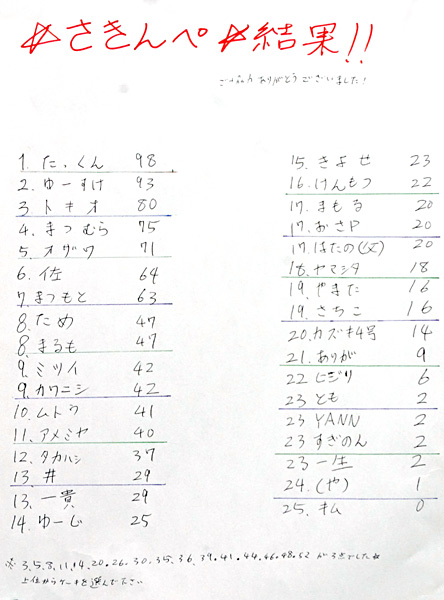 ☆さきんペ☆結果!!
ご協力ありがとうございました!
1. た、くん 98
2. ゆーすけ 93
3. トキオ 80
4. まつむら 75
5. オザワ 71
6. 佐 64
7. まつもと 63
8. ため 47
8. まるも 47
9. ミツイ 42
9. カワニシ 42
10. ムトウ 41
11. アメミヤ 40
12. タカハシ 37
13. 井 29
13. 一貴 29
14. ゆーじ 25
15. きよせ 23
16. けんもつ 22
17. まもる 20
17. おさP 20
17. はたの(父) 20
18. ヤマシタ 18
19. やまだ 16
19. さちこ 16
20. カズキ4号 14
21. ありが 9
22 ヒジリ 6
23 とも 2
23 YANN 2
23 すぎのん 2
23 一生 2
24. (や) 1
25. キム 0
※ 3.5.8.11.14.20.26.30.35.36.39.41.44.46.48.52 が3点でした☆
上位からケーキを選んで下さい